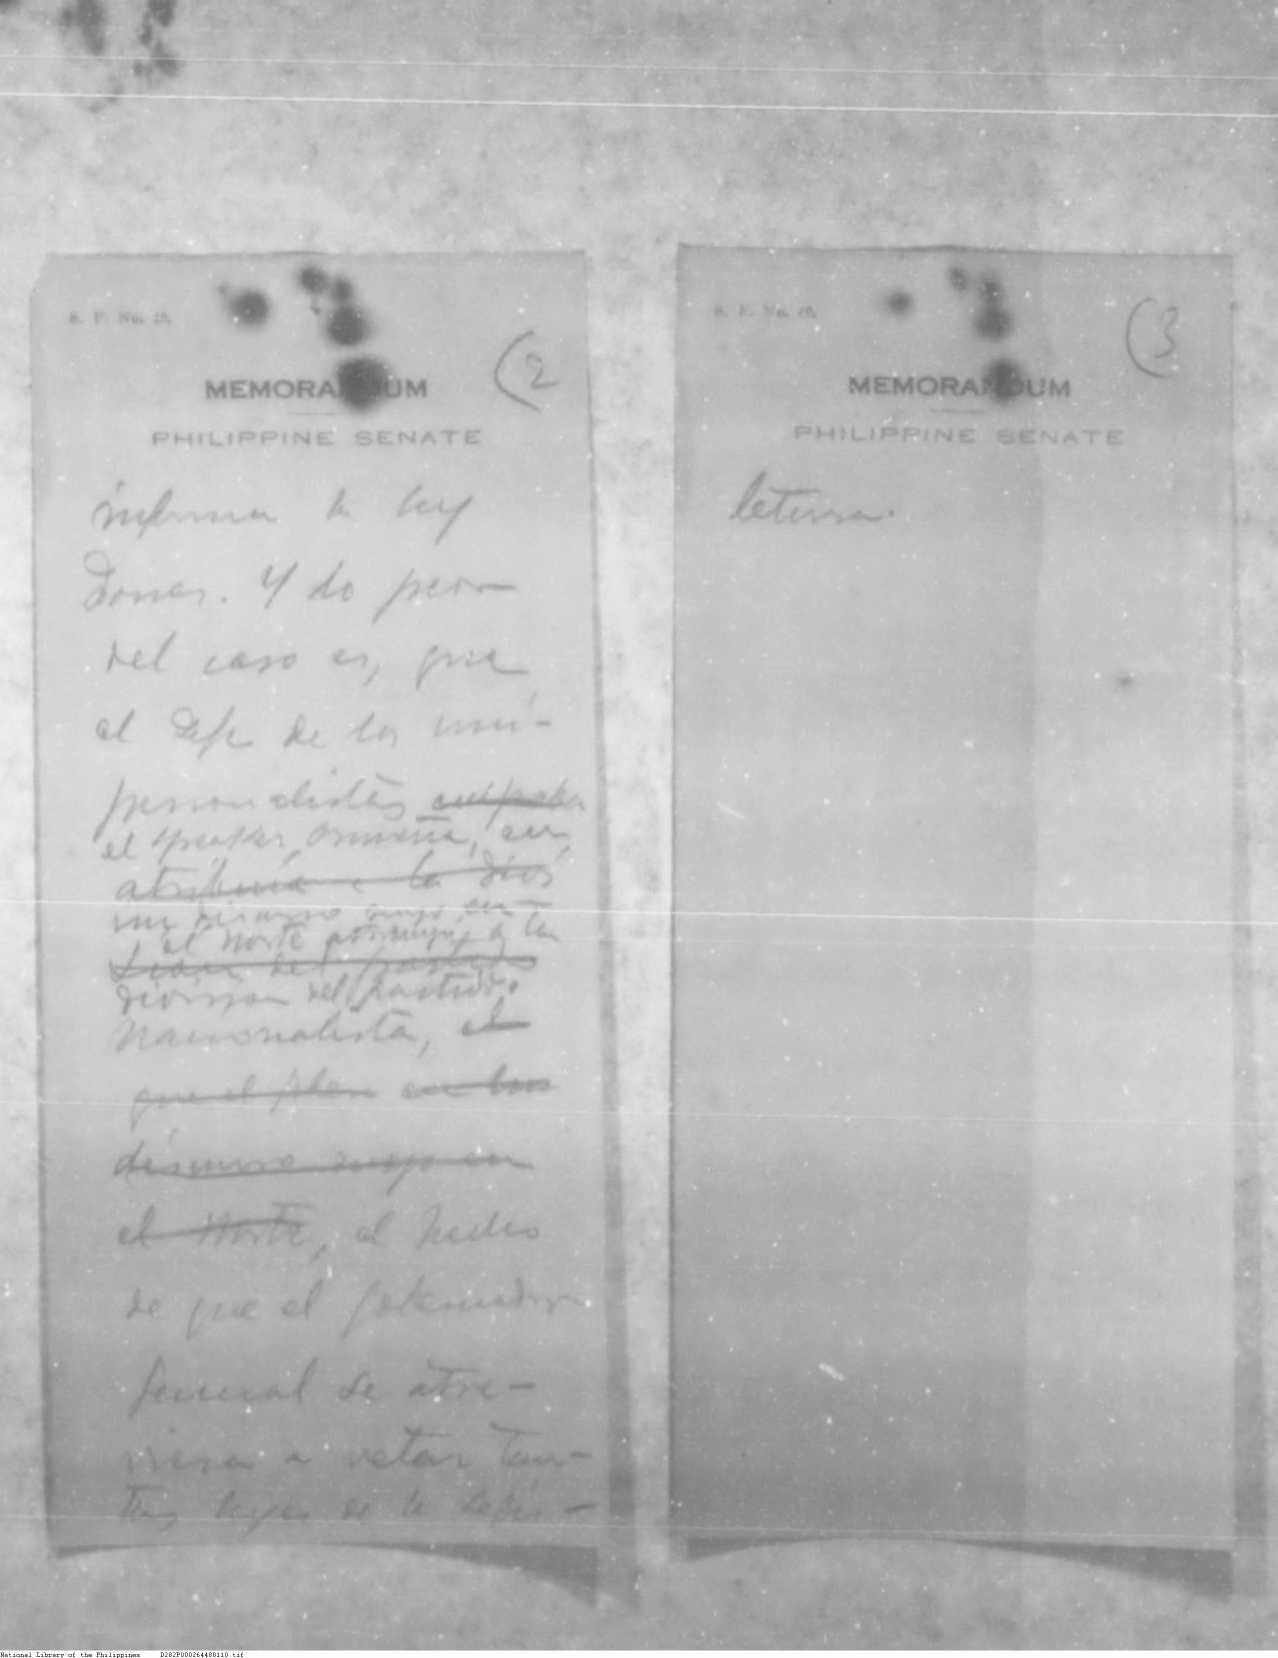 S. F. No. 19.
(2
MEMORANDUM
PHILIPPINE SENATE
informa la ley
Jones. Y lo peor
del caso es, que
el Jefe de los uni-
personalistas
el speaker Osmeña, en
atribuía a la divi
un discurso suyo en
el Norte atribuye a la
sion del partido
division del partido
Nacionalista, el
que el plan en los
discurso suyo en
el Norte, el hecho
de que el gobernador
general se atre-
viera a vetar tan-
tas leyes de la legis-
S. F. No. 19.
(3
MEMORANDUM
PHILIPPINE SENATE
laturra.
National Library of the Philippines D282P000264480110.tif